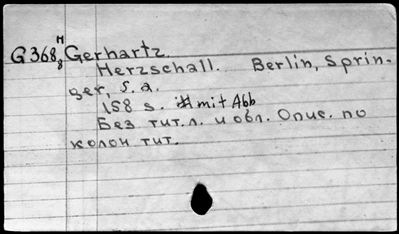 H
G 368 8 Gerhartz.
Herzschall. Berlin, Sprin-
ger, s. a.
158 s. mit Abb
Без тит. л. и обл. Опис. по
колон тит.